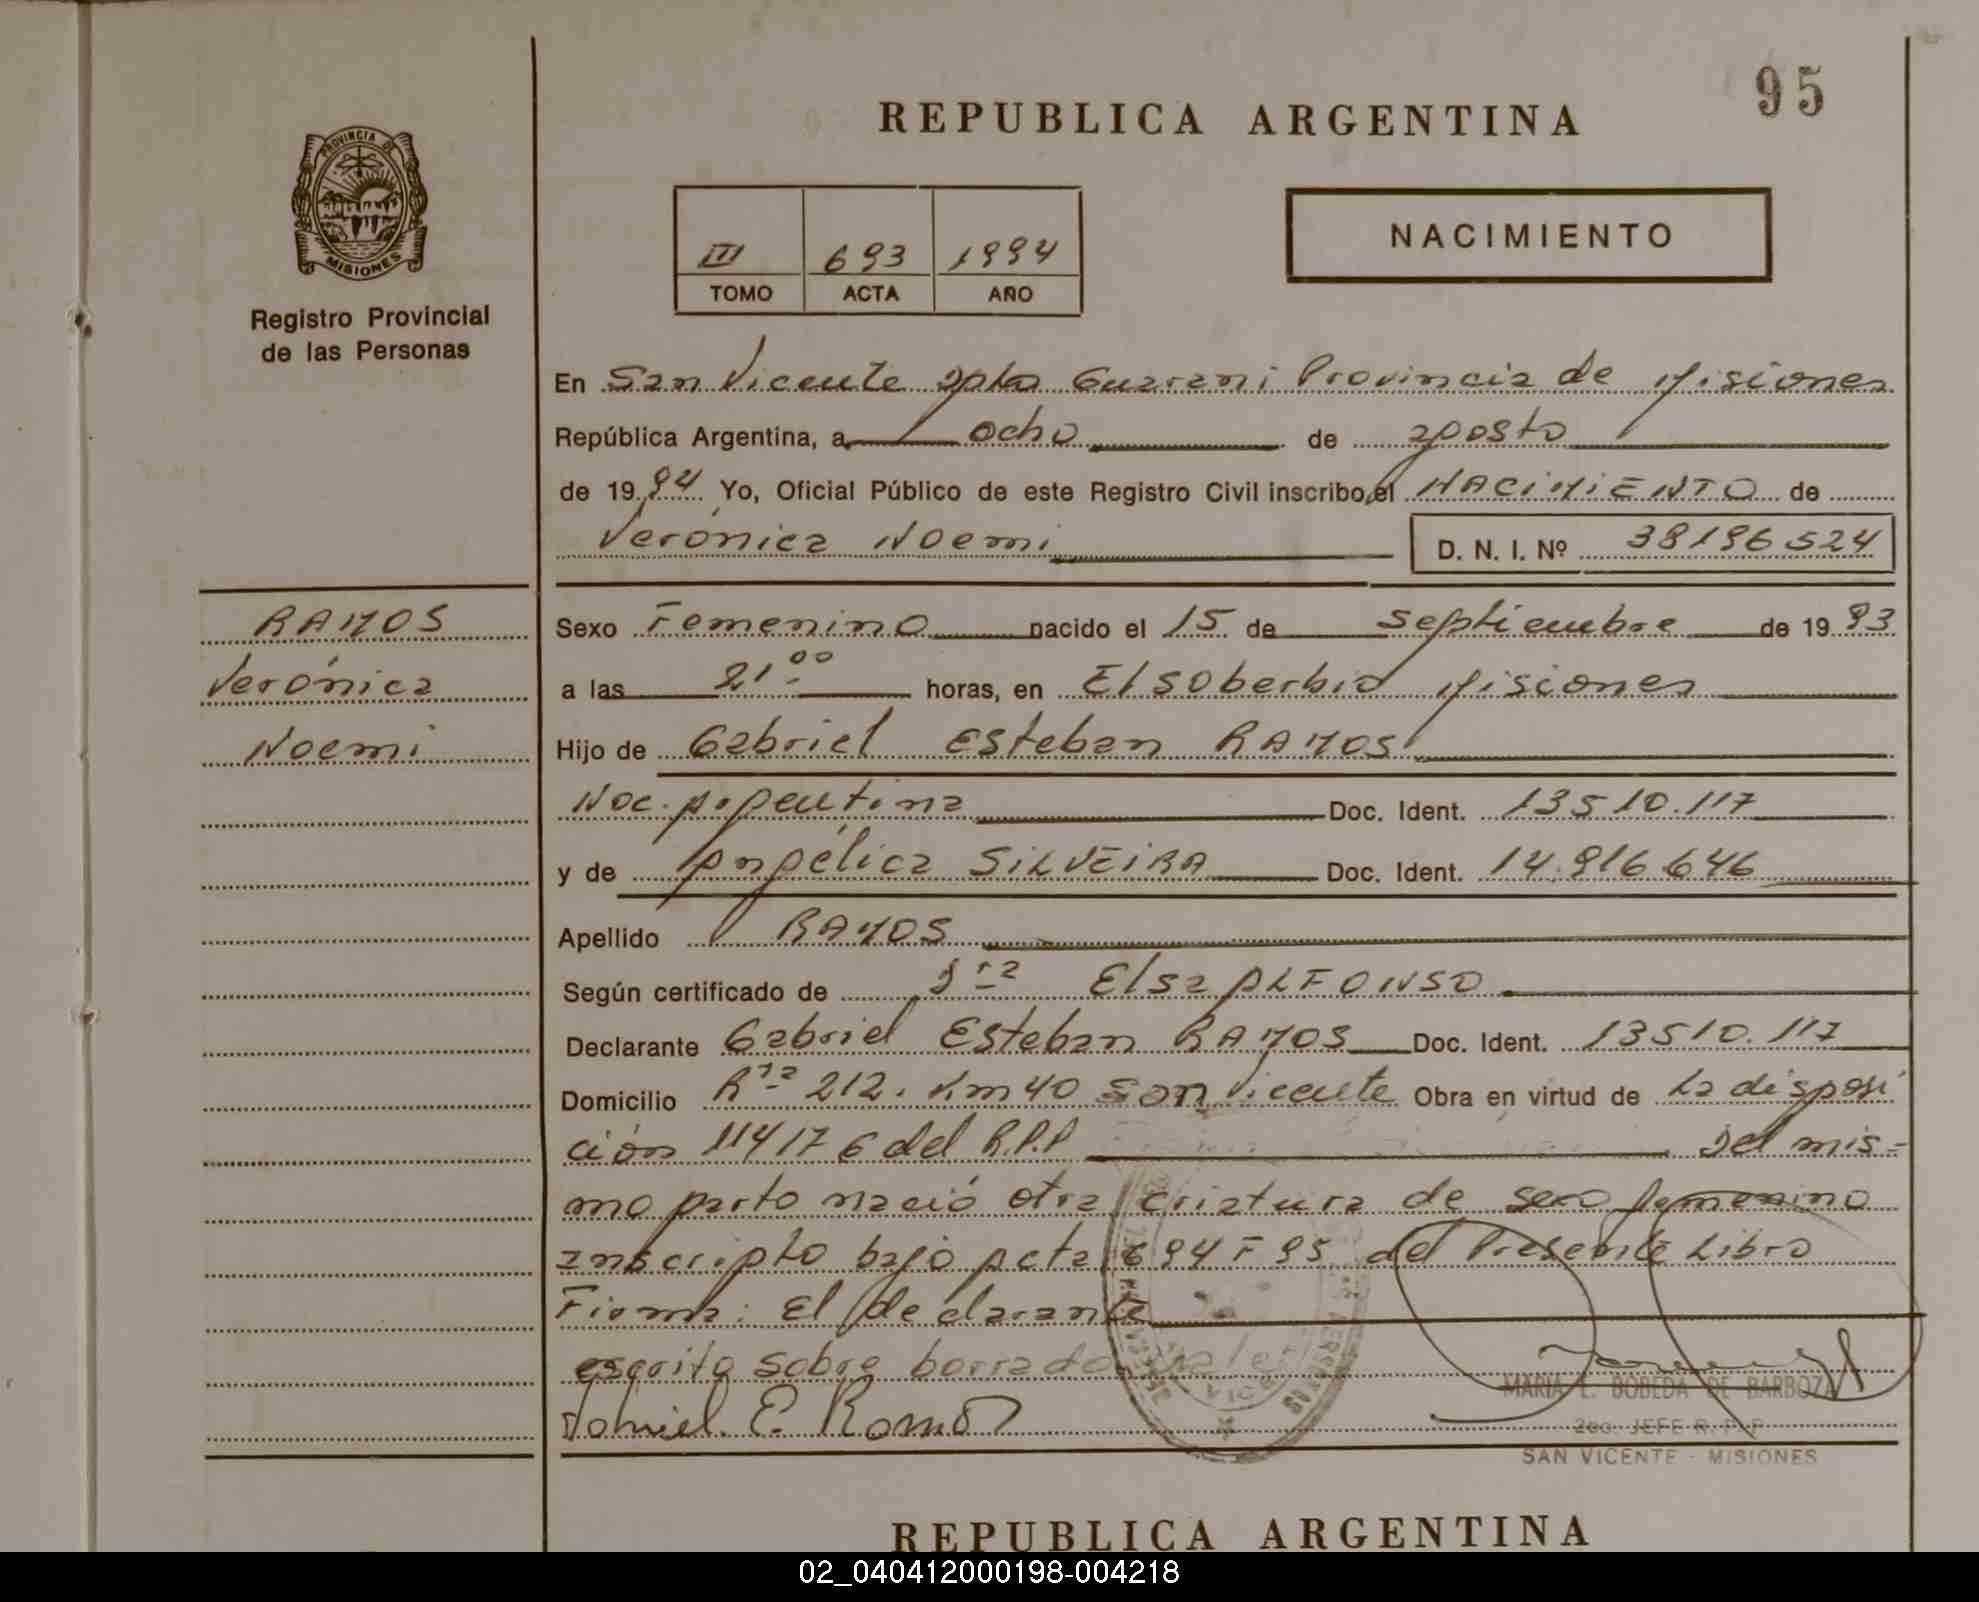 95
REPUBLICA ARGENTINA
PROVINCIA DE
MISIONES
Registro Provincial
de las Personas
III 693 1994
TOMO ACTA AÑO
NACIMIENTO
En San Vicente Dpto Guarani Provincia de Misiones
República Argentina, a ocho de agosto
de 1994 Yo, Oficial Público de este Registro Civil inscribo, el NACIMIENTO de
Verónica Noemi D. N. I. Nº 38196524
RAMOS
Verónica
Noemi
Sexo Femenino nacido el 15 de septiembre de 1993
a las 21ºº horas, en El Soberbio Misiones
Hijo de Gabriel Esteban RAMOS
Nac. Argentina Doc. Ident. 13510.117
y de Angélica SILVEIRA Doc. Ident. 14.916.646
Apellido RAMOS
Según certificado de Dra Elsa ALFONSO
Declarante Gabriel Esteban RAMOS Doc. Ident. 13510.117
Domicilio Rta 212. Km 40 San Vicente Obra en virtud de La disposi
ción 114/76 del R.P.P Del mis=
mo parto nació otra criatura de sexo femenino
inscripto bajo acta 694 F 95 del Presente Libro
Firma: El declarante
escrito sobre borrado vale
MARIA E. BOBEDA DE BARBOZA
2do. JEFE R. P. P.
SAN VICENTE - MISIONES
REPUBLICA ARGENTINA
02_040412000198-004218